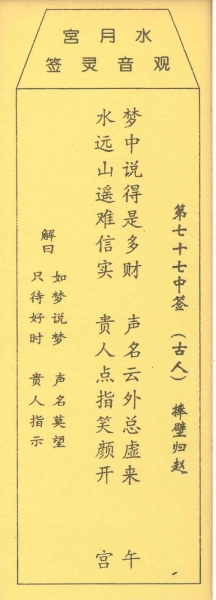 水月宮
观音灵签
第七十七中签 （古人） 捧璧归赵
梦中说得是多财 声名云外总虚来 午
水远山遥难信实 贵人点指笑颜开 宫
解曰
如梦说梦 声名莫望
只待好时 贵人指示